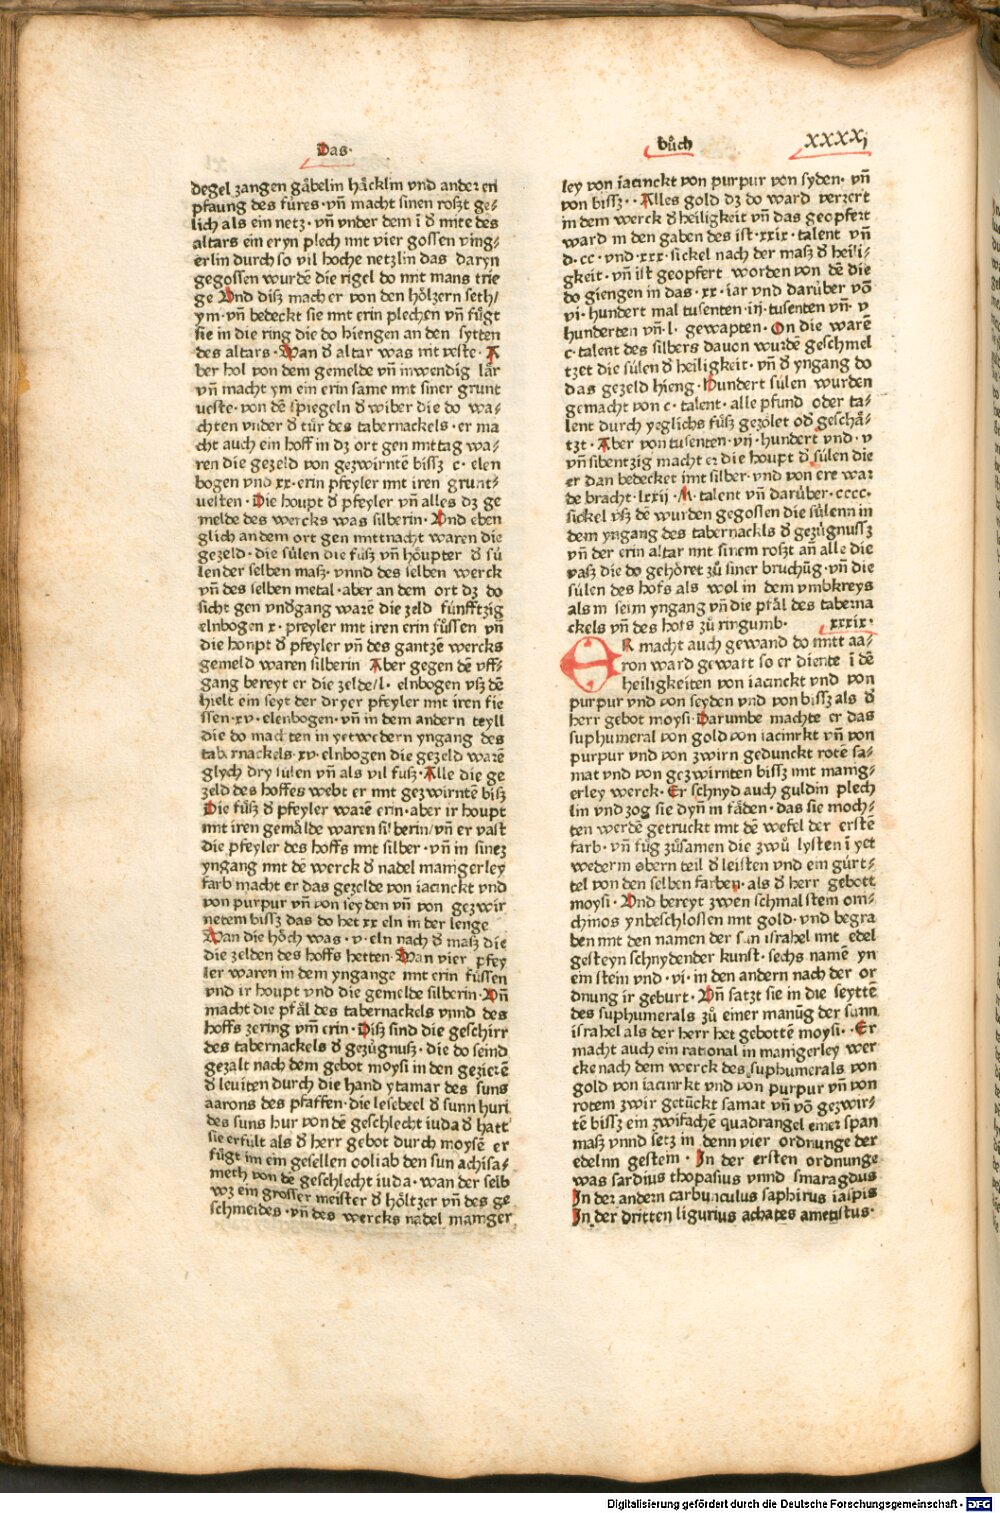 Das·
bůch
XXXXj
degel zangen gåbelin håcklin vnd ander en
pfaung des fúres· vñ macht sinen roßt ge⸗
lich als ein netz· vñ vnder dem ī đ mite des
altars ein eryn plech mit vier gossen ving⸗
erlin durch so vil hoche netzlin das daryn
gegossen wurdē die rigel do mit mans trie
ge Vnd diß mach er von den hőlzern seth/
ym· vñ bedeckt sie mit erin plechen vñ fůgt
sie in die ring die do hiengen an den sytten
des altars· Wan đ altar was nit veste· A
ber hol von dem gemelde vñ inwendig lår
vñ macht ym ein erin same mit siner grunt
veste· von dē spiegeln đ wiber die do wa⸗
chten vnder đ tůr des tabernackels· er ma
cht auch ein hoff in dz ort gen mittag wa⸗
ren die gezeld von gezwirntē bissz c· elen
bogen vnd xx· erin pfeyler mit iren grunt⸗
vesten· Die houpt đ pfeyler vñ alles dz ge
melde des wercks was silberin· Vnd eben
glich an dem ort gen mittnacht waren die
gezeld· die súlen die fůß vñ hőupter đ sú
len der selben maß· vnnd des selben werck
vñ des selben metal· aber an dem ort dz do
sicht gen vndgang warē die zeld fúnfftzig
elnbogen x· pfeyler mit iren erin fůssen vñ
die houpt đ pfeyler vñ des gantzē wercks
gemeld waren silberin Aber gegen dē vff⸗
gang bereyt er die zelde/l· elnbogen vß dē
hielt ein seyt der dryer pfeyler mit iren fie
ssen· xv· elenbogen· vñ in dem andern teyll
die do machten in yetwedern yngang des
tabernackels· xv· elnbogen die gezeld warē
glych dry súlen vñ als vil fuß· Alle die ge
zeld des hoffes webt er mit gezwirntē biß
Die fůß đ pfeyler warē erin· aber ir houpt
mit iren gemålde waren silberin/vñ er vast
die pfeyler des hoffs mit silber· vñ in sinez
yngang mit dē werck đ nadel manigerley
farb macht er das gezelde von iacinckt vnd
von purpur vñ von seyden vñ von gezwir
netem bissz das do het xx eln in der lenge
Wan die hőch was· v· eln nach đ maß die
die zelden des hoffs hetten· Wan vier pfey
ler waren in dem yngange mit erin fússen
vnd ir houpt vnd die gemelde silberin· Vñ
macht die pfål des tabernackels vnnd des
hoffs zering vm̄ erin· Diß sind die geschirr
des tabernackels đ gezúgnuß· die do seind
gezalt nach dem gebot moysi in den gezierē
đ leuiten durch die hand ytamar des suns
aarons des pfaffen· die lesebeel đ sunn huri
des suns hur von dē geschlecht iuda đ hatt
sie erfült als đ herr gebot durch moysē er
fúgt im ein gesellen ooliab den sun achisa⸗
meth von dē geschlecht iuda· wan der selb
wz ein grosser meister đ hőltzer vñ des ge
schmeides· vñ des wercks nadel maniger
ley von iacinckt von purpur von syden· vñ
von bissz·· Alles gold dz do ward verzert
in dem werck đ heiligkeit vñ das geopfert
ward in den gaben des ist· xxix· talent vñ
d· cc· vnd· xxx· sickel nach der maß đ heili⸗
gkeit· vñ ist geopfert worden von dē die
do giengen in das· xx· iar vnd darúber vō
vi· hundert mal tusenten· iij· tusenten vñ· v
hunderten vñ· l· gewapten· On die warē
c· talent des silbers dauon wurdē geschmel
tzet die súlen đ heiligkeit· vñ đ yngang do
das gezeld hieng· Hundert súlen wurden
gemacht von c· talent· alle pfund oder ta⸗
lent durch yeglichs fůß gezőlet ođ geschå⸗
tzt· Aber von tusenten· vij· hundert vnd· v
vñ sibentzig macht er die houpt đ súlen die
er dan bedecket mit silber· vnd von ere war
de bracht· lxxij· M· talent vñ darúber· cccc·
sickel vß dē wurden gegossen die súlenn in
dem yngang des tabernackls đ gezúgnussz
vñ der erin altar mit sinem roßt añ alle die
vaß die do gehőret zů siner bruchūg· vñ die
súlen des hofs als wol in dem vmbkreys
als in seim yngang vñ die pfål des taberna
ckels vñ des hofs zů ringumb· xxxix·
ER macht auch gewand do mitt aa⸗
ron ward gewatt so er diente ī dē
heiligkeiten von iacinckt vnd von
purpur vnd von seyden vnd von bissz als đ
herr gebot moysi· Darumbe machte er das
suphumeral von gold von iacinrkt vñ von
purpur vnd von zwirn gedunckt rotē sa⸗
mat vnd von gezwirnten bissz mit manig⸗
erley werck· Er schnyd auch guldin plech
lin vnd zog sie dyñ in fåden· das sie moch⸗
ten werdē getruckt mit dē wefel der erstē
farb· vñ fúg zůsamen die zwů lysten ī yet
wederm obern teil đ leisten vnd ein gúrt⸗
tel von den selben farben· als đ herr gebott
moysi· Vnd bereyt zwen schmalstein oni⸗
chinos ynbeschlossen mit gold· vnd begra
ben mit den namen der sun israhel mit edel
gesteyn schnydender kunst· sechs namē yn
ein stein vnd· vi· in den andern nach der or
dnung ir geburt· Vñ satzt sie in die seyttē
des suphumerals zů einer manūg der sunn
israhel als der herr het gebottē moysi·· Er
macht auch ein rational in manigerley wer
cke nach dem werck des suphumerals von
gold von iacinrkt vnd von purpur vñ von
rotem zwir getúckt samat vñ vō gezwir⸗
tē bissz ein zwifachē quadrangel einer span
maß vnnd setz in denn vier ordnunge der
edelnn gestein· In der ersten ordnunge
was sardius thopasius vnnd smaragdus
In der andern carbunculus saphirus iaspis
In der dritten ligurius achates ametistus·
Digitalisierung gefördert durch die Deutsche Forschungsgemeinschaft - DFG